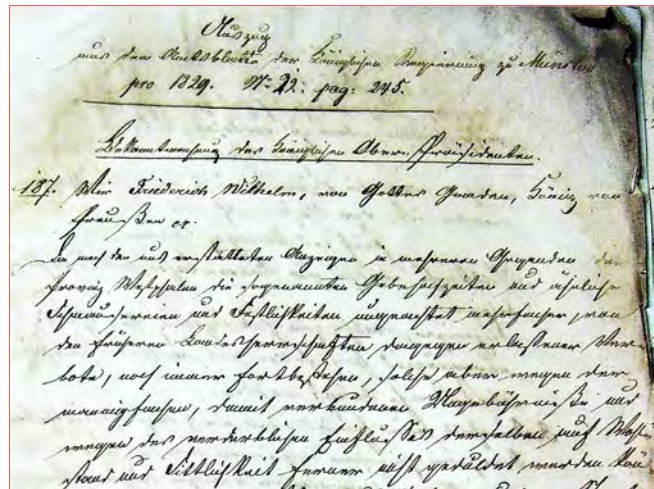 Auszug
aus dem Amtsblatte der Königlichen Regierung zu Münster
pro 1829. No 32. pag: 245.
Bekanntmachung des Königlichen Ober-Präsidenten.
187. Wir Friederich Wilhelm, von Gottes Gnaden, König von
Preußen pp.
Da nach den uns erstatteten Anzeigen in mehreren Gegenden der
Provinz Westphalen die sogenannten Gebehochzeiten und ähnliche
Schmausereien und Festlichkeiten ungeachtet mehrfacher, von
den früheren Landesherrschaften dagegen erlassener Ver-
bote, noch immer fortbestehen, solche aber wegen der
mannigfachen, damit verbundenen Ungebührnisse und
wegen des verderblichen Einflusses derselben auf Wohl-
stand und Sittlichkeit ferner nicht geduldet werden kön-